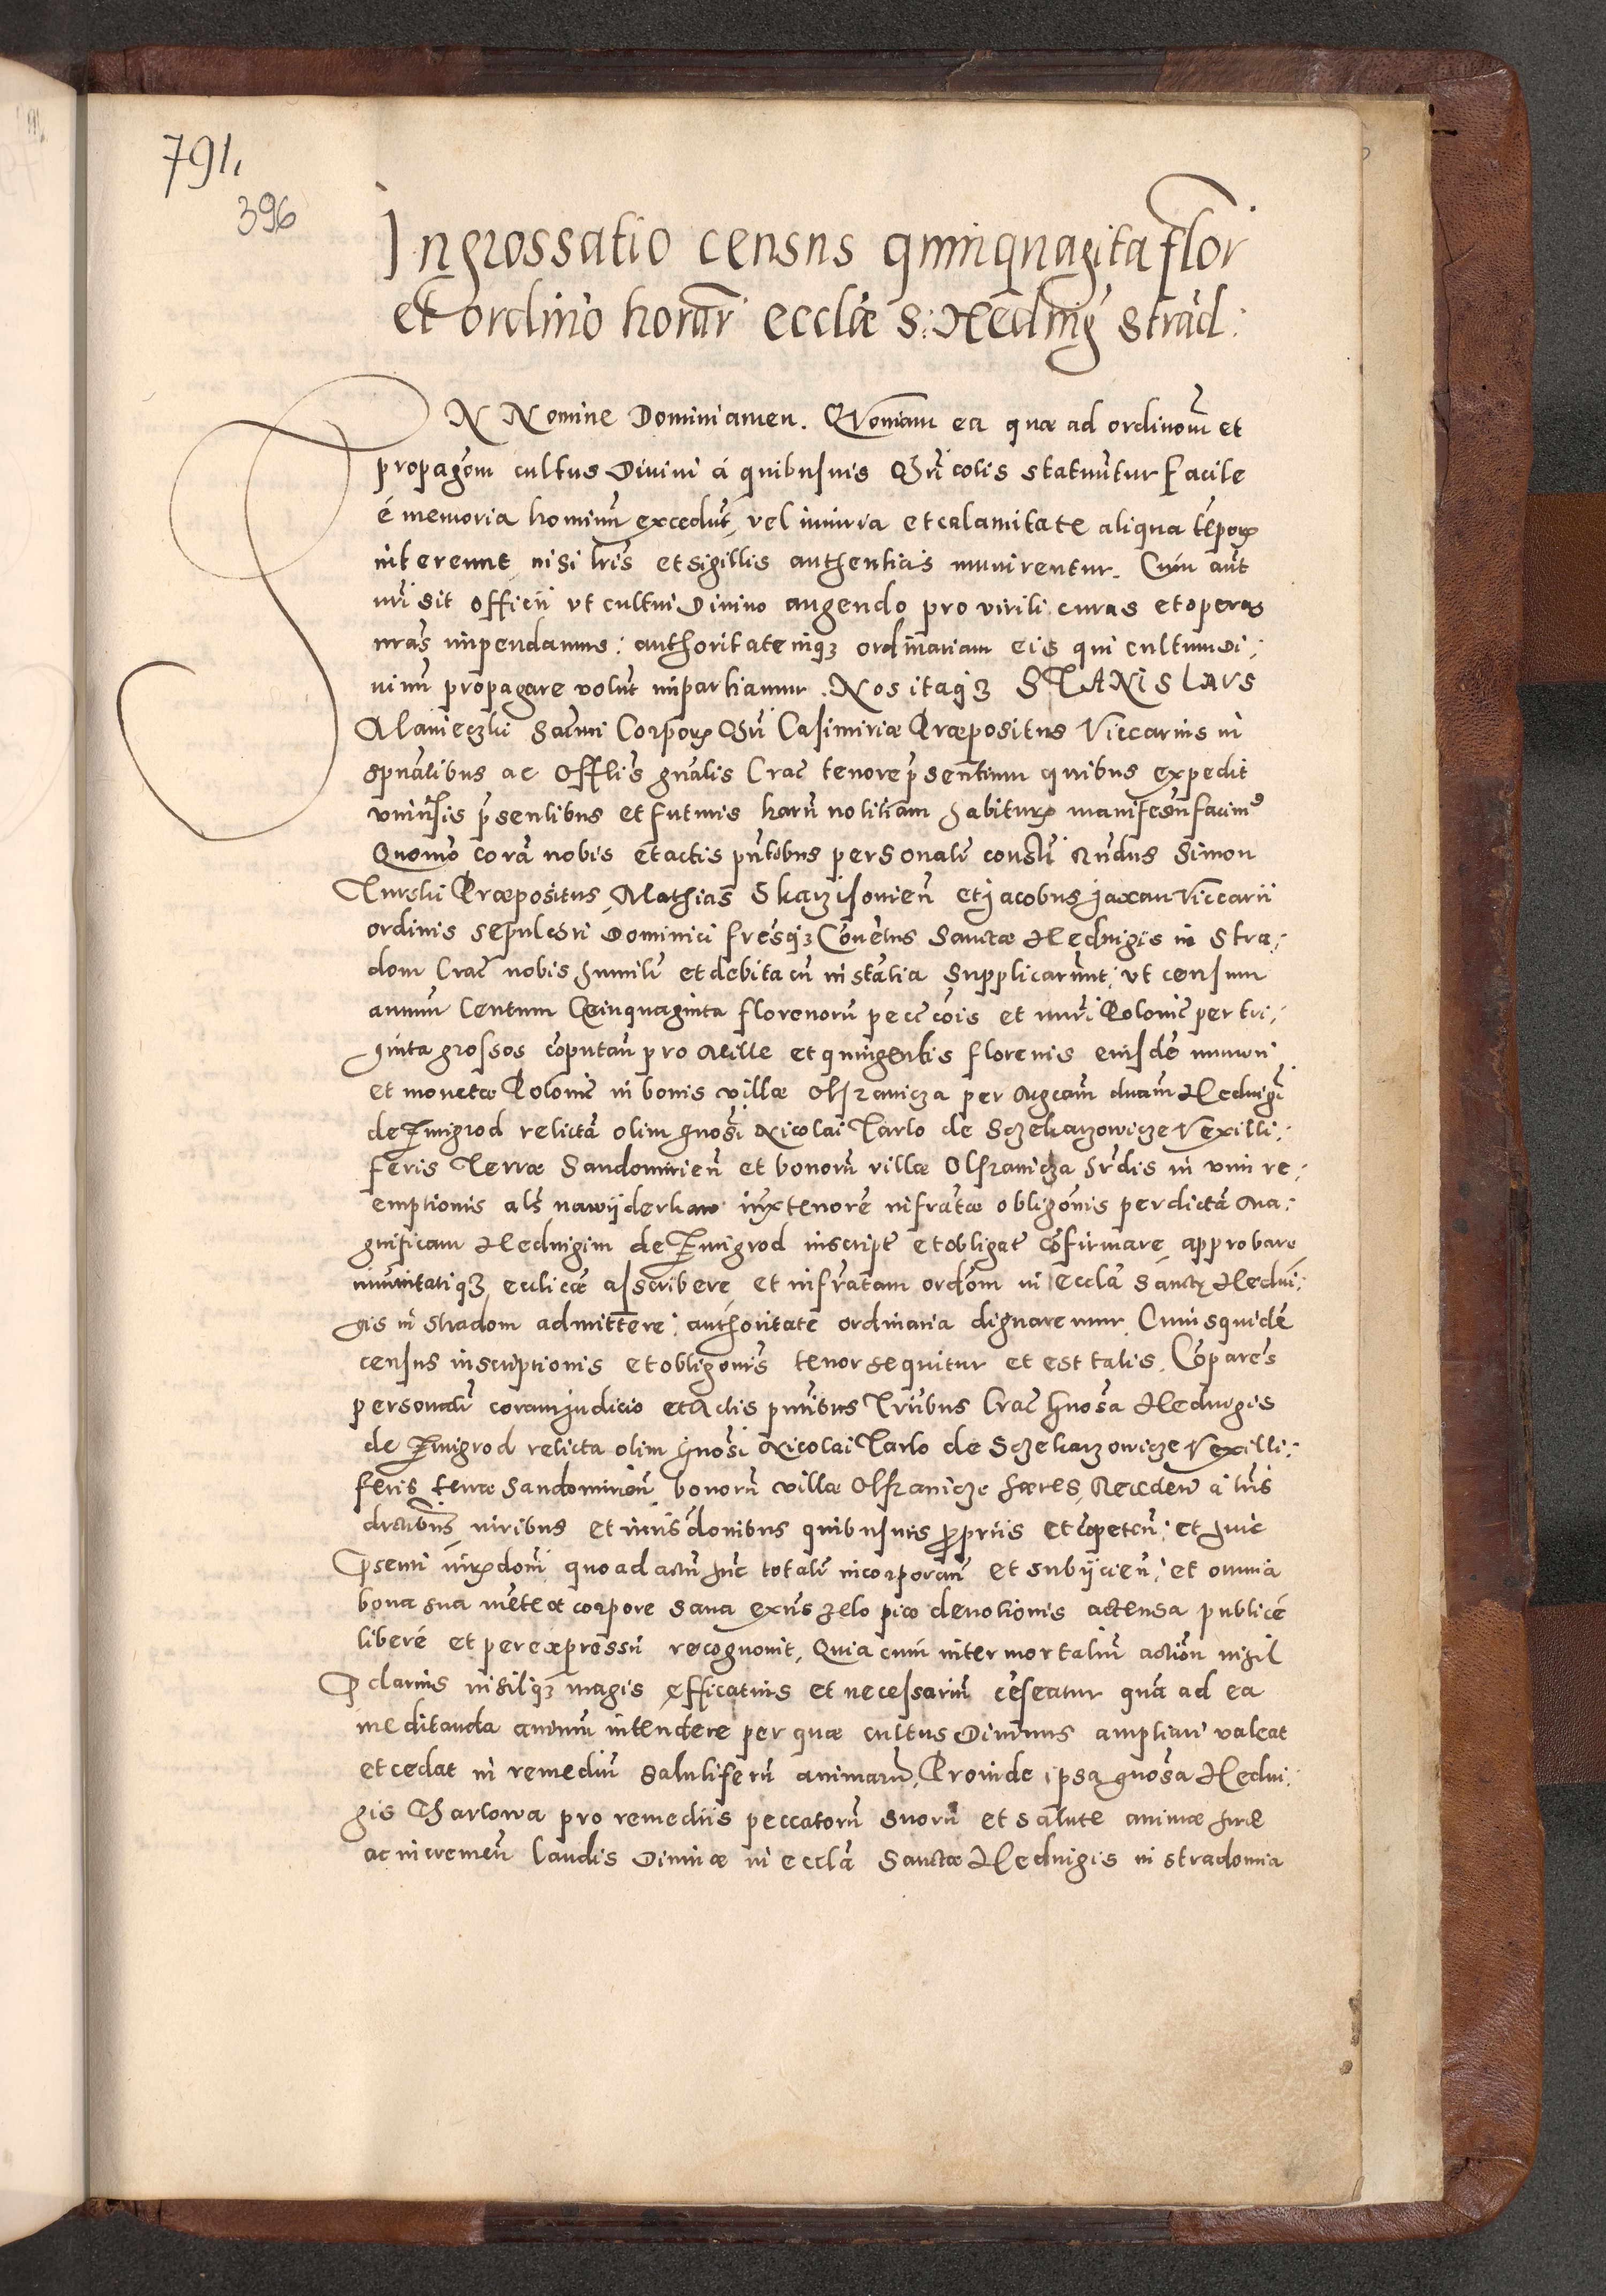 791,
396
Ingrossatio census quinquagīta flor
et ordinō horar ecclīæ S: Hedvig Strad:
IN Nomine Domini amen. Quoniam ea quæ ad ordinoēm et
propagōem cultus Divini á quibusvis Chricolis statuūtur facile
é memoria hominū excedūt, vel iniuria et calamitate aliqua tēpoꝝ
intereunt, nisi lris et sigillis authenticis munirentur. Cum aūt
nri sit officii vt cultui Divino augendo pro virili curas et operas
nras impendamus: authoritatemqȝ ordinariam eis qui cultum Di:
vinū propagare volūt impartiamur. Nos itaqȝ STANISLAVS
Manieczki Sacrmi Corpoꝝ Chri Casimiriæ Præpositus Viccarius in
spualibus ac Offlis gnalis Crac tenore pñsentium quibus expedit
vniusis pñsentibus et futuris harū notitiam habituꝝ manifestū facimꝰ
Quomō corā nobis et actis pñtibus personalr constī Rndus Simon
Turski Præpositus, Mathias Skarzisovien et Jacobus Jaxan Viccarii
ordinis sepulchri Dominici fresqȝ Cōvetus Sanctæ Hedvigis in Stra:
dom Crac nobis humilr et debita cū instātia supplicarunt: vt censum
annuū Centum Qeinquaginta florenorū pecc cois et nuri Polonic per tri:
ginta grossos cōputan pro Mille et quingentis florenis eiusdē numeri
et monetæ Polonic in bonis villæ Olsranicza per Mgcam dnam Hedvigī
de Zmigrod relictā olim gnosi Nicolai Tarlo de Sczekarzowicze Vexilli:
feris Terræ Sandomirien et bonorū villæ Olsranicza hrdis in vim re:
emptionis als nawyderkaw iuxtenorē infratæ obligonis per dictā Ma:
gnificam Hedvigim de Zmigrod inscript et obligat cōfirmare, approbare
imunitatiqȝ ecclicæ asscribere et infratam ordōem in ecclā Sanctę Hedvi:
gis in Stradom admittere: authoritate ordinaria dignaremur. Cuiusquidē
census inscriptionis et obligonis tenor sequitur et est talis. Cōparēs
personalr coram judicio et Actis pñtibus Trribus Crac Gnosa Hedvigis
de Zmigrod relicta olim Gnosi Nicolai Tarlo de Sczekarzowicze Vexilli:
feris terræ Sandomirien bonorū villæ Olsranicze hæres, Recedeñ á tris
districtibus iuribus et iurisdonibus quibusvis propriis et cōpeten: et huic
Psenti iurisdoni quo ad actū hūc totalr incorporan et subiicien: et omnia
bona sua mēte et corpore sana existens zelo piæ devotionis accensa publicé
liberé et per expressū recognovit. Quia cum inter mortaliū actiōn nihil
Pclarius nihilqȝ magis efficatius et necessariū cēseatur quā ad ea
meditanda animū intendere per quæ cultus Divinus ampliari valeat
et cedat in remediū salutiferū animarū, Proinde ipsa gnosa Hedvi:
gis Tharlowa pro remediis peccatorū suorū et salute animæ suæ
ac incremen laudis Divinæ in ecclā Sanctæ Hedvigis in Stradomia